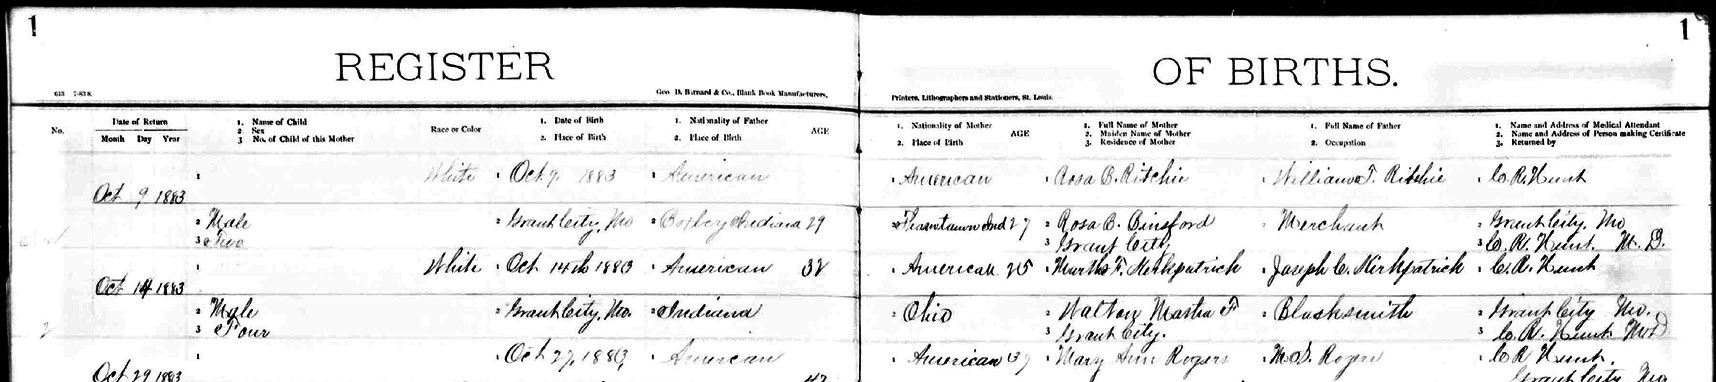 1
1
REGISTER OF BIRTHS.
613 7-83 8. Geo D. Barnard & Co., Blank Book Manufacturers, Printers, Lithographers and Stationers, St. Louis.
No.
Date of Return
Month Day Year
1. Name of Child
2 Sex
3 No. of Child of this Mother
Race or Color
1. Date of Birth
2. Place of Birth
1. Nationality of Father
2. Place of Birth
AGE
1. Nationality of Mother
2. Place of Birth
AGE
1. Full Name of Mother
2. Maiden Name of Mother
3. Residence of Mother
1. Full Name of Father
2. Occupation
1. Name and Address of Medical Attendant
2. Name and Address of Person making Certificate
3. Returned by
1 White 1 Oct 9 1883 1 American 1 American 1 Rosa B. Ritchie William T. Ritchie 1 C. R. Hunt
Oct 9 1883
2 Male 2 Grant City, Mo 2 Indiana 29 27 2 Rosa B. Binsford 2 Merchant 2 Grant City, Mo
3 Two 3 Grant City 3 C. R. Hunt M. D.
1 White 1 Oct 14th 1883 1 American 32 1 American 25 1 Martha F. Kirkpatrick 1 Joseph C. Kirkpatrick 1 C. R. Hunt
Oct 14 1883
2 Male 2 Grant City, Mo. 2 Indiana 2 Ohio 2 Martha F 2 Blacksmith 2 Grant City Mo.
2 3 Four 3 Grant City. 3 C. R. Hunt M.D.
1 Oct 29, 1883 1 American 1 American 1 Mary Ann Rogers 1 Rogers 1 C R Hunt.
Oct 29 1883 Grant City Mo